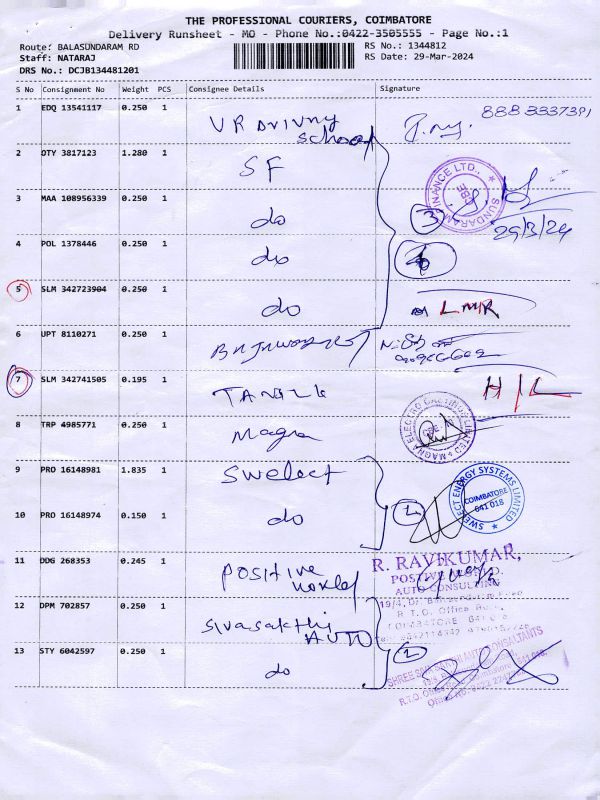 THE PROFESSIONAL COURIERS, COIMBATORE
Delivery Runsheet - MO - Phone No.:0422-3505555 - Page No.:1
Route: BALASUNDARAM RD RS No.: 1344812
Staff: NATARAJ RS Date: 29-Mar-2024
DRS No.: DCJB134481201
S No Consignment No Weight PCS Consignee Details Signature
1 EDQ 13541117 0.250 1 VR Driving School 8883337391
2 DTY 3817123 1.280 1 SF
SUNDARAM FINANCE LTD., CBE
3 MAA 108956339 0.250 1 do 3
29/3/24
4 POL 1378446 0.250 1 do
5 SLM 342723904 0.250 1 do LMR
6 UPT 8110271 0.250 1
7 SLM 342741505 0.195 1 H/L
8 TRP 4985771 0.250 1 Magna
MAGNA ELECTRO CASTINGS LIMITED
9 PRO 16148981 1.835 1 Swelect
SWELECT ENERGY SYSTEMS LIMITED
COIMBATORE
641 018
10 PRO 16148974 0.150 1 do 2
11 DDG 268353 0.245 1 Positive World
R. RAVIKUMAR,
AUTO CONSULTING
R. T. O. Office Road,
COIMBATORE
12 DPM 702857 0.250 1 Sivasakthi AUTO
13 STY 6042597 0.250 1 do 2